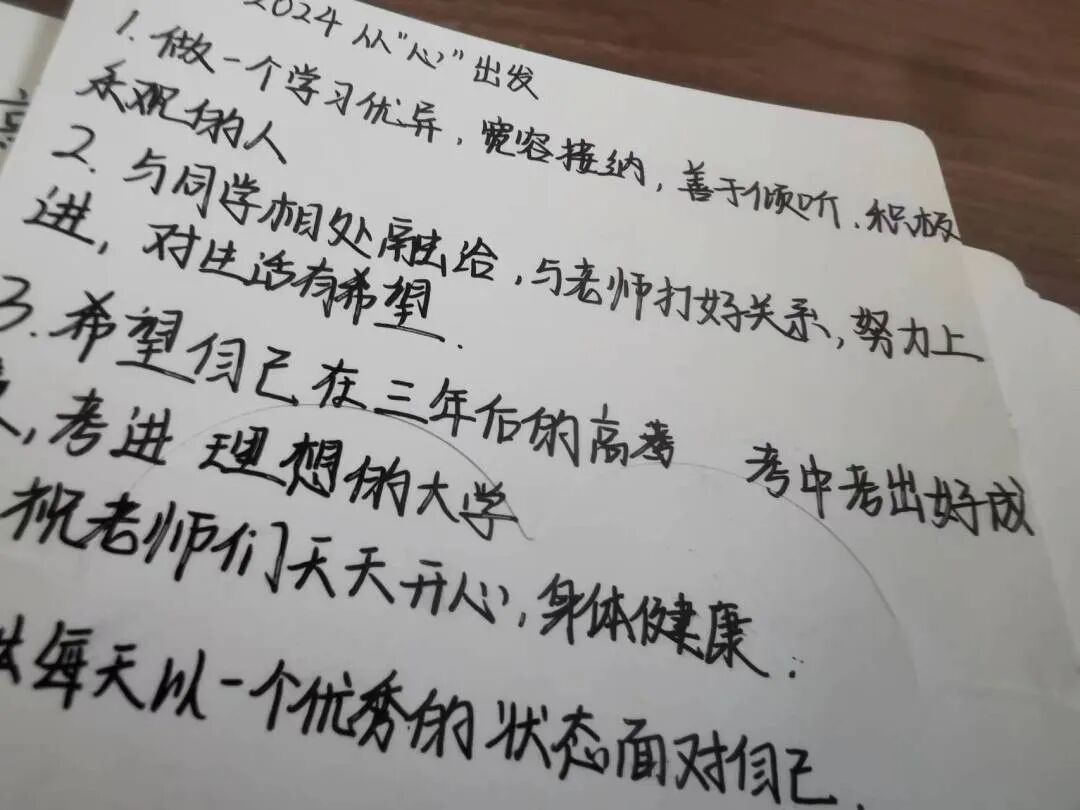 2024 从“心”出发
1. 做一个学习优异，宽容接纳，善于倾听．积极
乐观的人
2. 与同学相处融给，与老师打好关系，努力上
进，对生活有希望．
3. 希望自己在三年后的高考 考中考出好成
，考进 理想的大学
祝老师们天天开心，身体健康．
每天以一个优秀的状态面对自己．